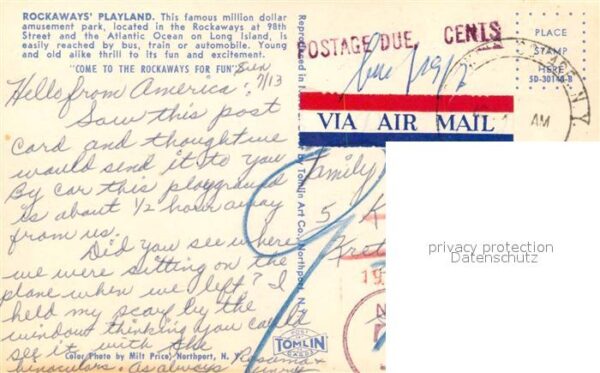 ROCKAWAYS' PLAYLAND. This famous million dollar
amusement park, located in the Rockaways at 98th
Street and the Atlantic Ocean on Long Island, is
easily reached by bus, train or automobile. Young
and old alike thrill to its fun and excitement.
"COME TO THE ROCKAWAYS FOR FUN"
7/13
Hello from America,
Saw this post
card and thought we
would send it to you
By car this playground
is about 1/2 hour away
from us.
Did you see where
we were sitting on the
plane when we left? I
held my scarf by the
window thinking you could
see it with the
binoculars. As always
Color Photo by Milt Price, Northport, N. Y.
Rosanna
by Tomlin Art Co., Northport, N. Y.
TOMLIN
POSTAGE DUE CENTS
PLACE
STAMP
HERE
SD-30148-B
N.Y.
AM
VIA AIR MAIL
Family
5 K
19
privacy protection
Datenschutz